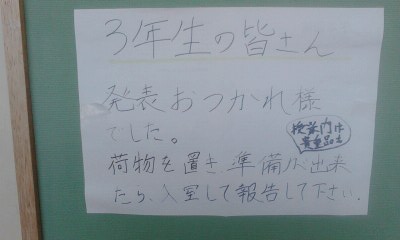 3年生の皆さん
発表おつかれ様
でした。
荷物を置き準備が出来
たら、入室して報告して下さい。